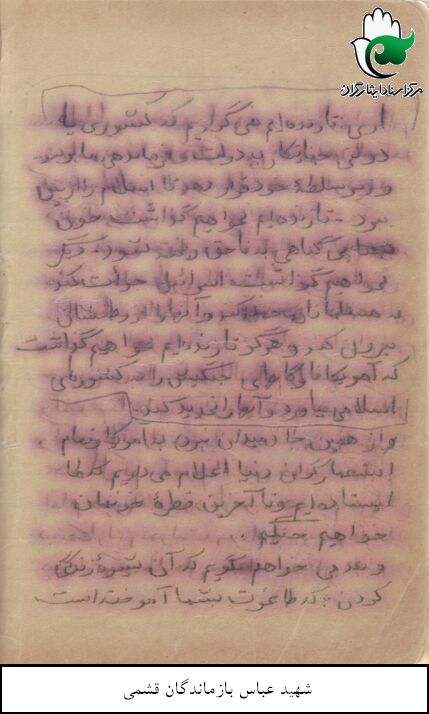 مرکز اسناد ایثارگران
آری، تا زنده‌ایم نمی‌گذاریم که کشوری یا
دولتی جنایتکار به دولت و فرماندهی ما بر
و زیر سلطهٔ خود قرار دهد تا اسلام را از بین
ببرد. تا زنده‌ایم نخواهیم گذاشت خون
بی گناهی به ناحق ریخته شود. دیگر
نخواهیم گذاشت اسرائیل جرأت کند
به همسایه‌اش حمله کند و آنها را از وطنشان
بیرون کند و هرگز تا زنده‌ایم نخواهیم گذاشت
که آمریکا ناوگانهای جنگیش را به کشورهای
اسلامی بیاورد و آنها را تهدید کند.
و از همین جا در میدان نبرد به آمریکا و تمام
استعمارگران دنیا اعلام می‌داریم که ما
ایستاده‌ایم و تا آخرین قطرهٔ خونمان
خواهیم جنگید.
و بعد می خواهم بگویم که آن شیوهٔ زندگی
کردن که طاغوت بشما آموخته است
شهید عباس بازماندگان قشمی